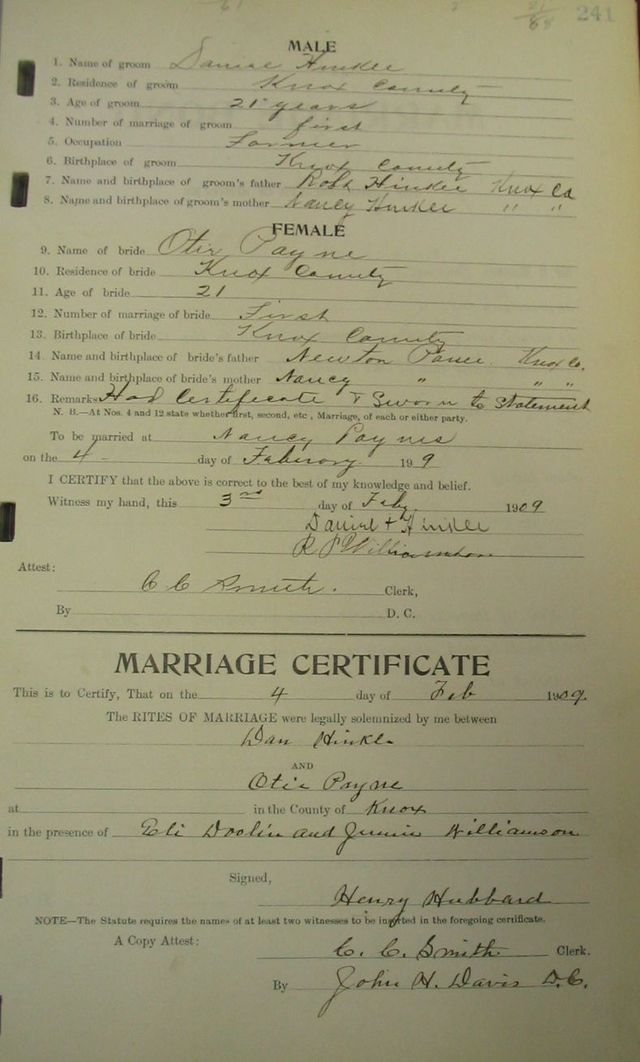 241
MALE
1. Name of groom Daniel Hinkle
2. Residence of groom Knox County
3. Age of groom 21 years
4. Number of marriage of groom first
5. Occupation Farmer
6. Birthplace of groom Knox County
7. Name and birthplace of groom's father Robt Hinkle Knox Co
8. Name and birthplace of groom's mother Nancy Hinkle " "
FEMALE
9. Name of bride Otie Payne
10. Residence of bride Knox County
11. Age of bride 21
12. Number of marriage of bride First
13. Birthplace of bride Knox County
14. Name and birthplace of bride's father Newton Payne Knox Co.
15. Name and birthplace of bride's mother Nancy " " "
16. Remarks Had Certificate & Sworn to Statement
N. B.—At Nos. 4 and 12 state whether first, second, etc., Marriage, of each or either party.
To be married at Nancy Paynes
on the 4 day of February 19 9
I CERTIFY that the above is correct to the best of my knowledge and belief.
Witness my hand, this 3rd day of Feby. 1909
Daniel + Hinkle
R P Williamson
Attest:
C C Smith. Clerk,
By D. C.
MARRIAGE CERTIFICATE
This is to Certify, That on the 4 day of Feb 1909.
The RITES OF MARRIAGE were legally solemnized by me between
Dan Hinkle
AND
Otie Payne
at in the County of Knox
in the presence of Eli Doolin and Jennie Williamson
Signed,
Henry Hubbard
NOTE—The Statute requires the names of at least two witnesses to be inserted in the foregoing certificate.
A Copy Attest: C. C. Smith Clerk.
By John H. Davis D.C.